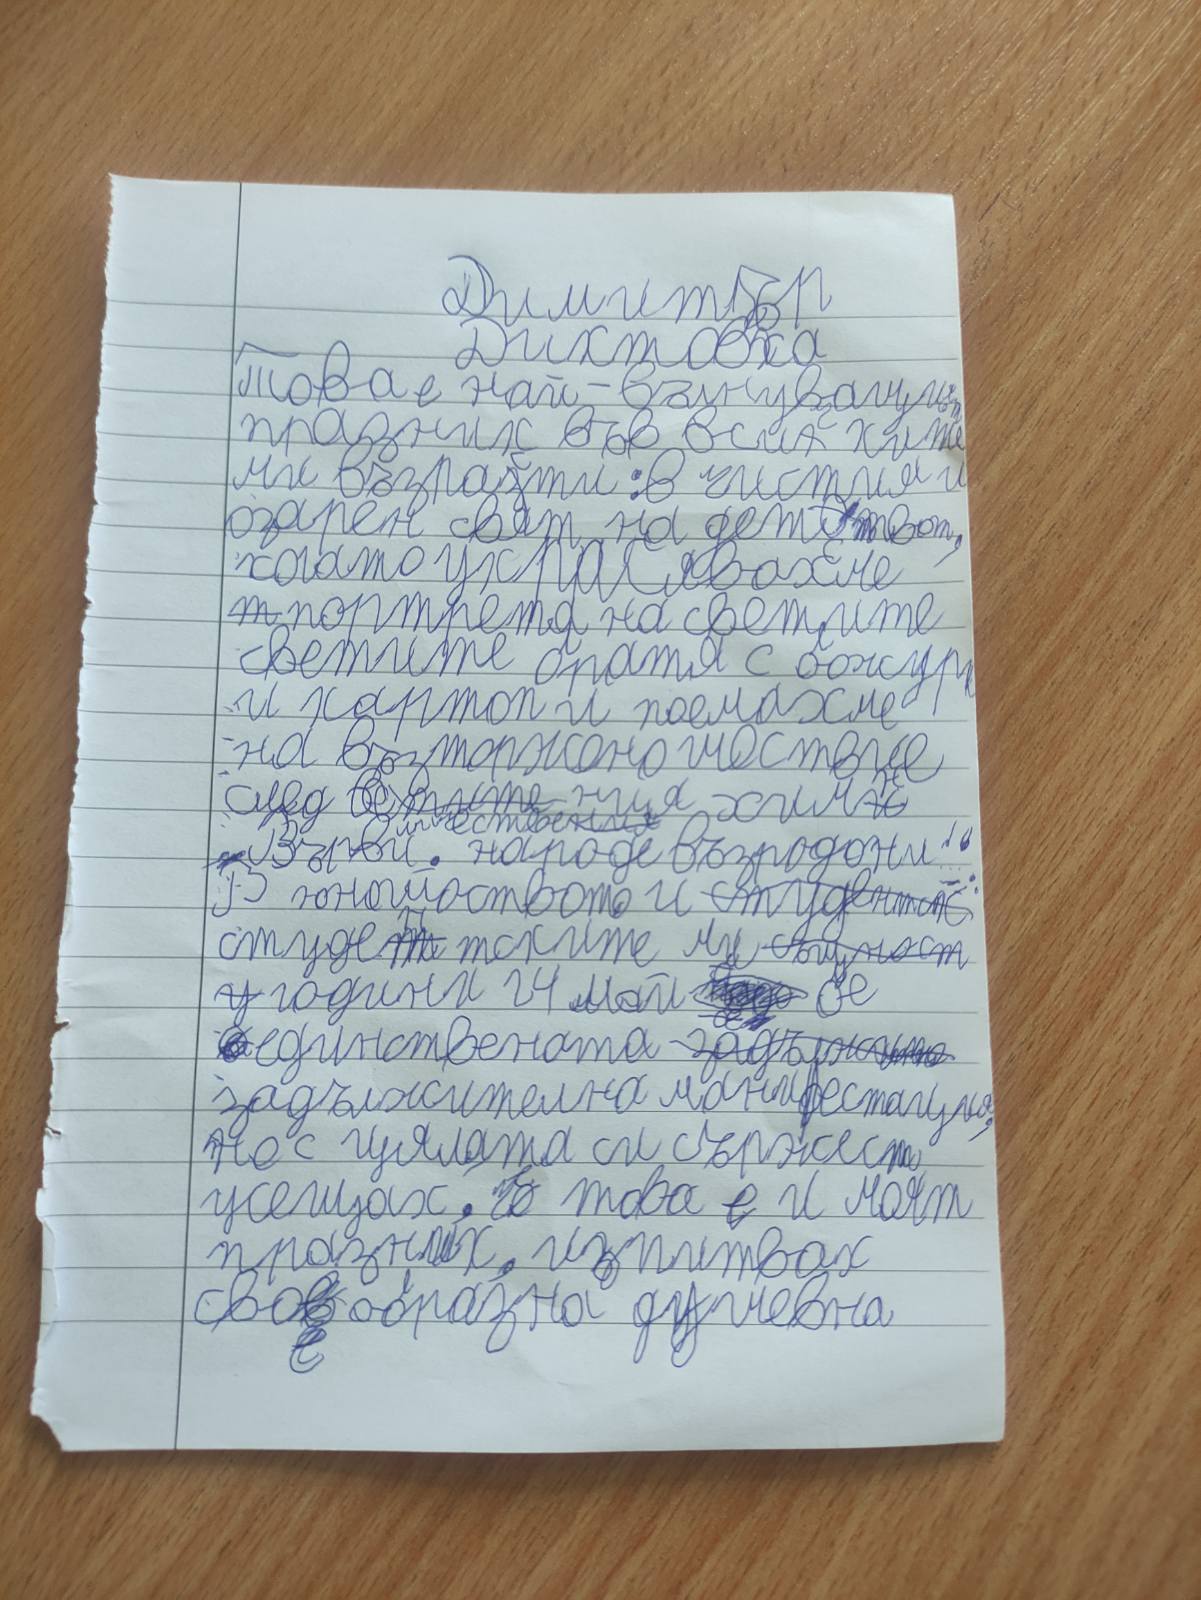 Димитър
Диктовка
Това е най-вълнуващият
празник във всички
ми възрасти: в чистия и
озарен свят на детството,
когато украсявахме
портрета на светлите
светите братя с божури
и картоп и поемахме
на възторжено шествие
след химн
Върви. народе възродени!"
В юношоството и студентск
студентските ми същност
години 24 май бе
единствената задължите
задължителна манифестация,
но с цялата си сържест
усещах. че това е и моят
празник. изпитвах
своеобразна душевна